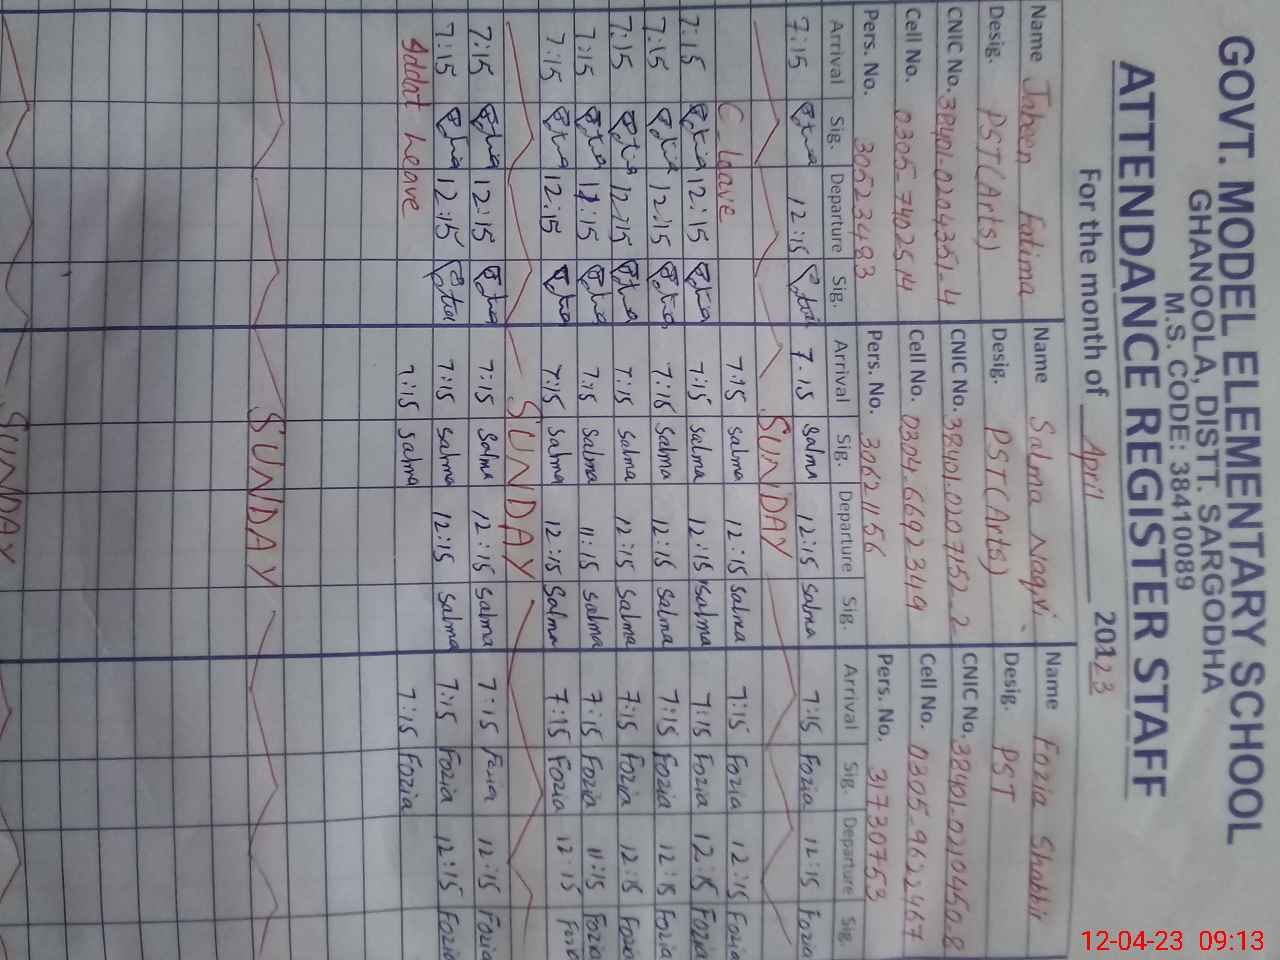 GOVT. MODEL ELEMENTARY SCHOOL
GHANOOLA, DISTT. SARGODHA
M.S. CODE: 38410089
ATTENDANCE REGISTER STAFF
For the month of April 20123
Name Jabeen Fatima Name Salma Naqvi. Name Fozia Shabbir
Desig. PST(Arts) Desig. PST(Arts) Desig. PST
CNIC No. 38401-0204351-4 CNIC No. 38401-0207152-2 CNIC No. 38401-0210450-8
Cell No. 0305-7402514 Cell No. 0304-6692349 Cell No. 0305-9622467
Pers. No. 30523483 Pers. No. 30621156 Pers. No. 31730753
Arrival Sig. Departure Sig. Arrival Sig. Departure Sig. Arrival Sig. Departure Sig.
7:15 12:15 7.15 Salma 12:15 Salma 7:15 Fozia 12:15 Fozia
SUNDAY
C-leave 7:15 Salma 12:15 Salma 7:15 Fozia 12:15 Fozia
7:15 12:15 7:15 Salma 12:15 Salma 7:15 Fozia 12:15 Fozia
7:15 12:15 7:15 Salma 12:15 Salma 7:15 Fozia 12:15 Fozia
7:15 12:15 7:15 Salma 12:15 Salma 7:15 Fozia 12:15 Fozia
7:15 11:15 7:15 Salma 11:15 Salma 7:15 Fozia 11:15 Fozia
7:15 12:15 7:15 Salma 12:15 Salma 7:15 Fozia 12:15 Fozia
SUNDAY
7:15 12:15 7:15 Salma 12:15 Salma 7:15 Fozia 12:15 Fozia
7:15 12:15 7:15 Salma 12:15 Salma 7:15 Fozia 12:15 Fozia
Addat Leave 7:15 Salma 7:15 Fozia
SUNDAY
SUNDAY
12-04-23 09:13